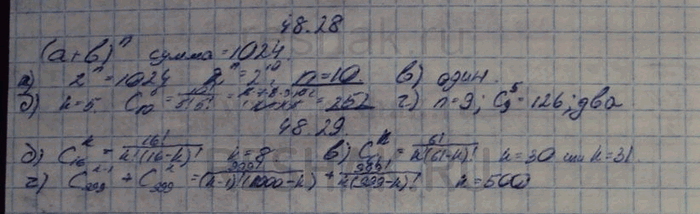 48.28
(a+b)ⁿ сумма = 1024.
а) 2ⁿ = 1024 2ⁿ = 2¹⁰ n = 10. в) один.
б) k = 5. = 252 г) n = 9; C₉⁵ = 126; два.
48.29.
б) C₁₆ᵏ = 16!/(k!(16-k)!) k = 8 в) C₆₁ᵏ = 61!/(k!(61-k)!) k = 30 или k = 31.
г) C₉₉₉ᵏ⁻¹ + C₉₉₉ᵏ = 999!/((k-1)!(1000-k)!) + 999!/(k!(999-k)!) k = 500